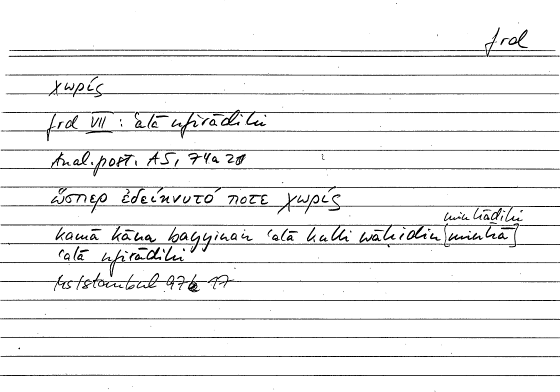 frd
χωρίς
frd VII : ʿalā nfirādihi
Anal. post. A5, 74a 21
ὥσπερ ἐδείκνυτό ποτε χωρίς
minhādihi
kamā kāna bayyinan ʿalā kulli wāḥidin [minhā]
ʿalā nfirādihi
Ms Istanbul 97b 17